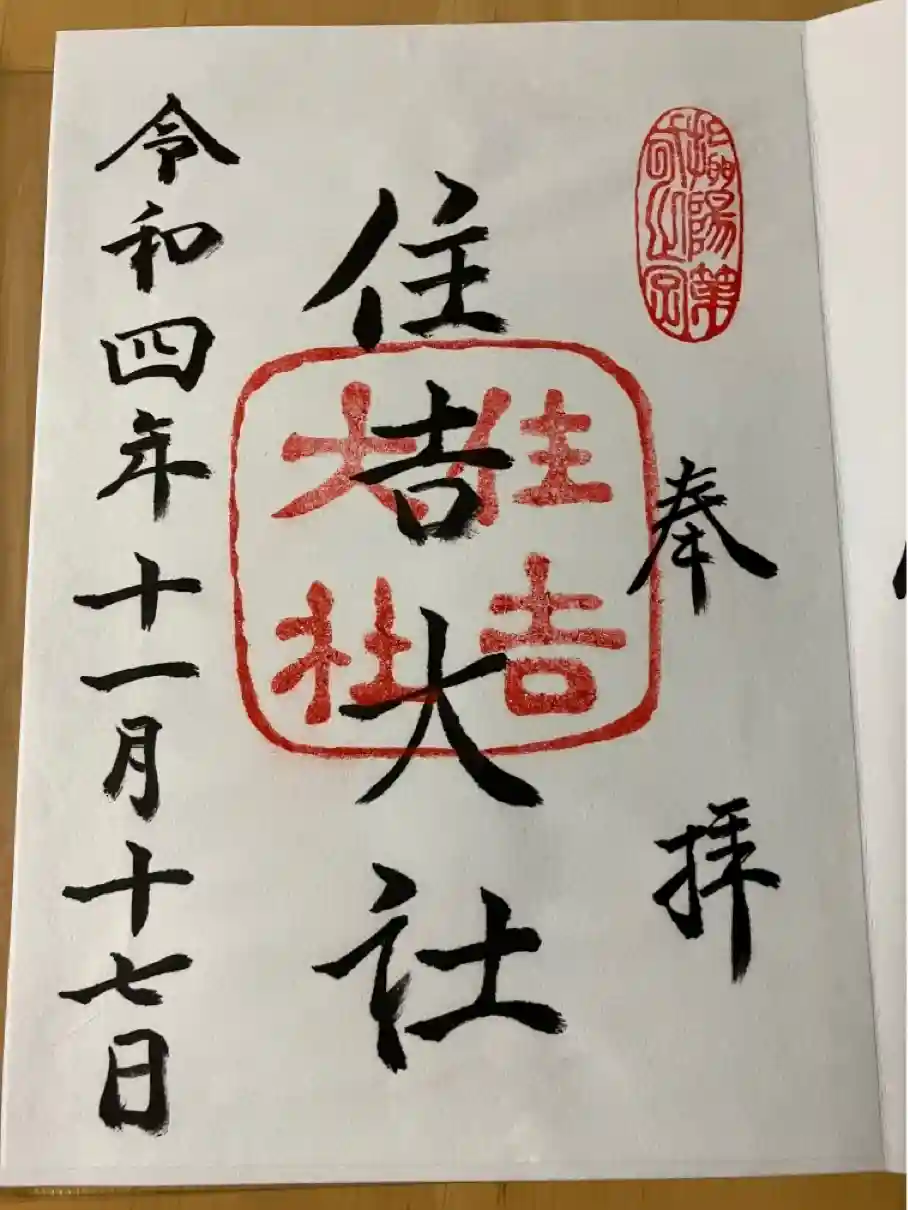 奉拝
住吉大社
令和四年十一月十七日
住吉
大社